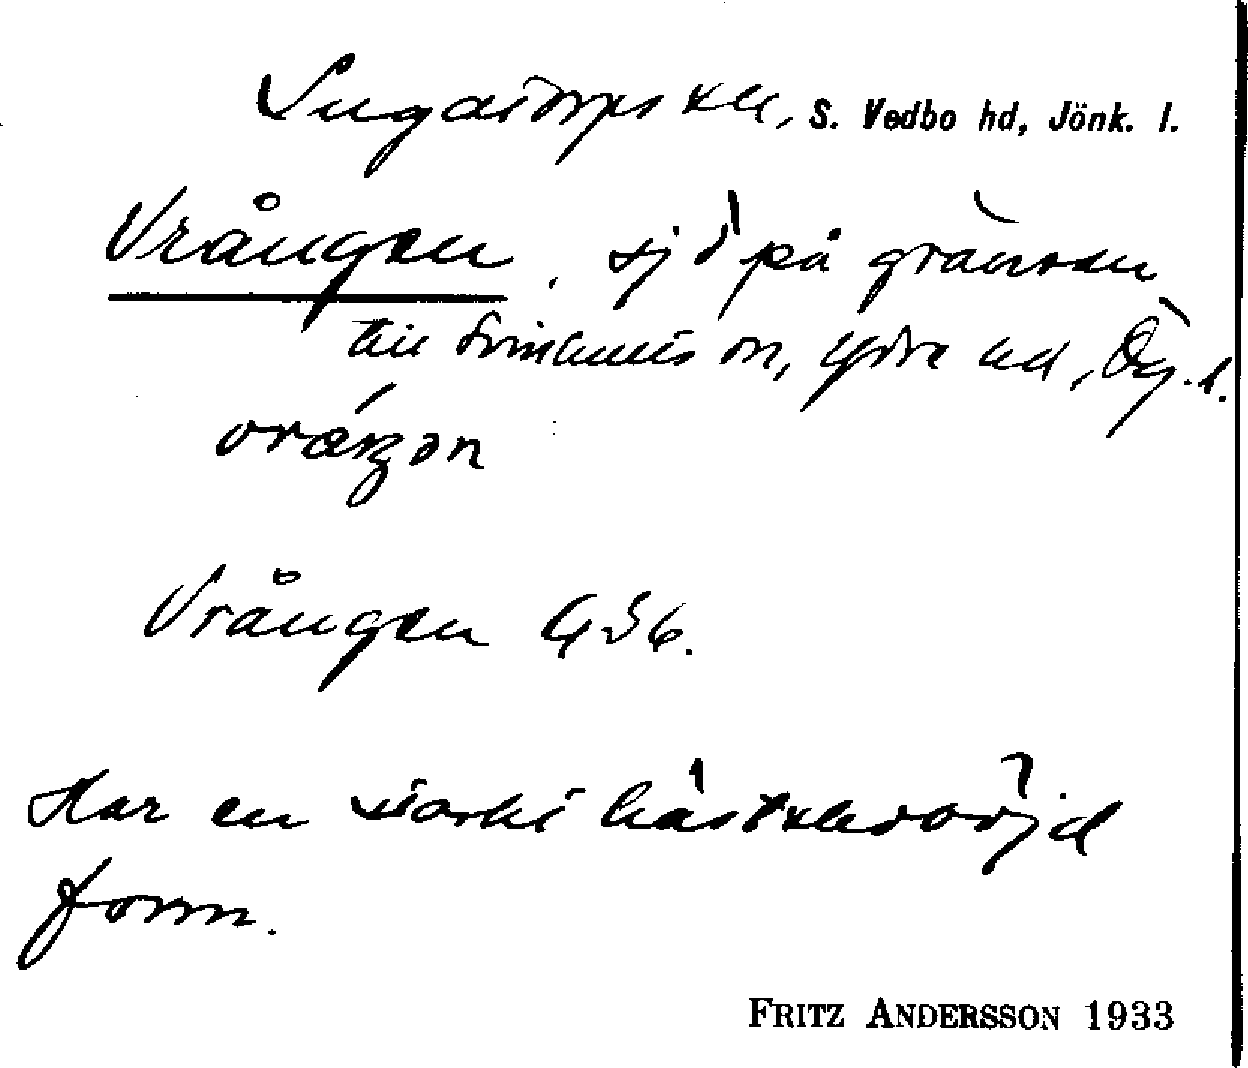 Ingatorps sn, S. Vedbo hd, Jönk. l.
Vrången, sjö på gränsen
till Svinhults sn, Ydre hd, Ög. l.
Vrången G56.
Har en starkt hästskoböjd
form.
FRITZ ANDERSSON 1933